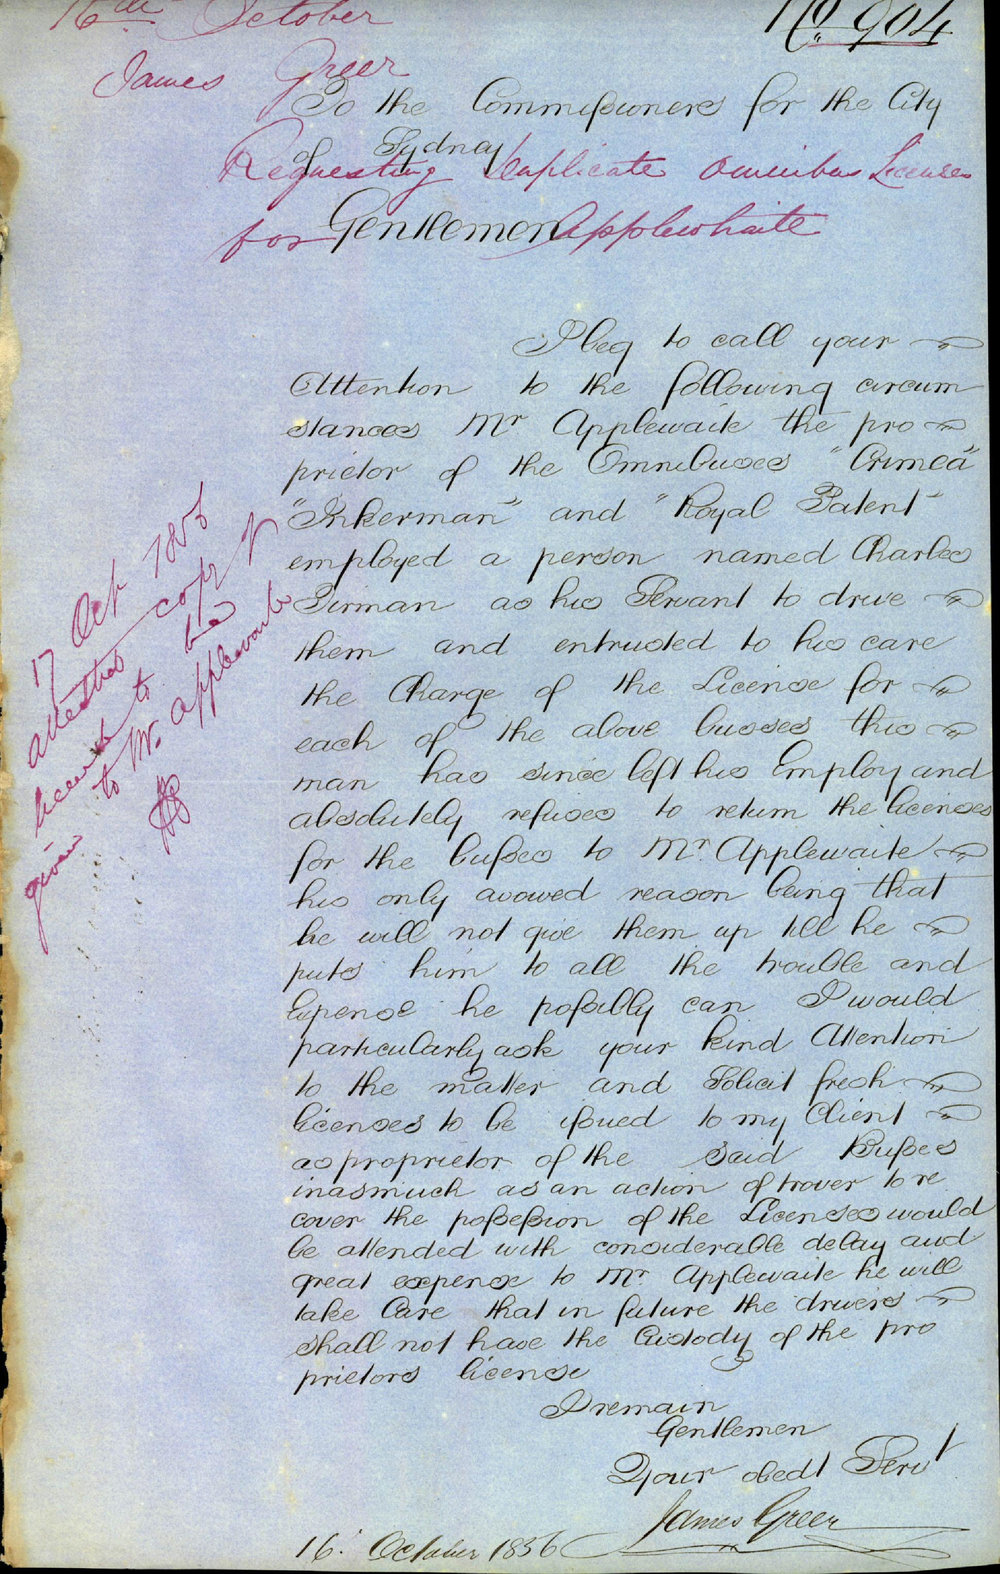 16th October
No 904
James Greer
To the Commissioners for the City
of Sydney
Requesting duplicate omnibus Licenses
for Applewhaite
Gentlemen
I beg to call your
Attention to the following circum
stances Mr Applewaite the pro
prietor of the Omnibuses "Crimea"
"Inkerman" and "Royal Patent"
employed a person named Charles
Pirman as his Servant to drive
them and entrusted to his care
the Charge of the License for
each of the above busses this
man has since left his Employ and
absolutely refuses to return the licenses
for the busses to Mr. Applewaite
his only avowed reason being that
he will not give them up till he
puts him to all the trouble and
Expense he possibly can I would
particularly ask your kind Attention
to the matter and Solicit fresh
licenses to be issued to my Client
as proprietor of the said Busses
inasmuch as an action of trover to re
cover the possession of the Licenses would
be attended with considerable delay and
great expense to Mr. Applewaite he will
take Care that in future the drivers
shall not have the Custody of the pro
prietors license
I remain
Gentlemen
Your obedt Servt
James Greer
16. October 1856
17 Oct 1856
attested copy of
license to be
given to Mr. Applewaite